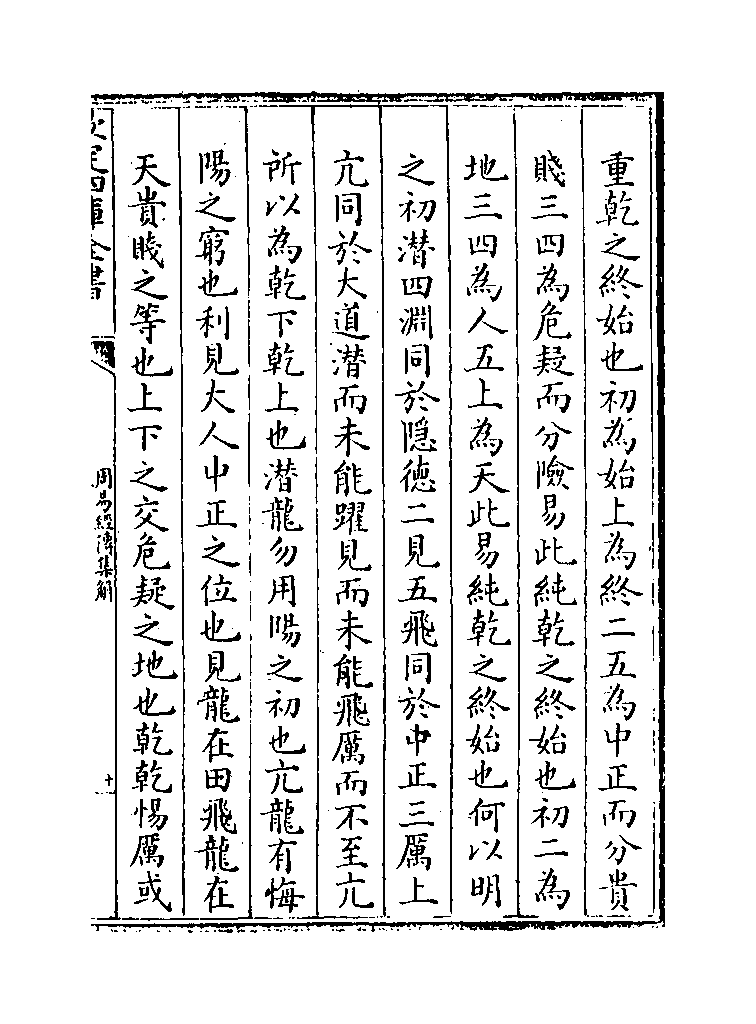 重乾之終始也初為始上為終二五為中正而分貴
賤三四為危疑而分險易此純乾之終始也初二為
地三四為人五上為天此易純乾之終始也何以明
之初潛四淵同於隱德二見五飛同於中正三厲上
亢同於大道潛而未能躍見而未能飛厲而不至亢
所以為乾下乾上也潛龍勿用陽之初也亢龍有悔
陽之窮也利見大人中正之位也見龍在田飛龍在
天貴賤之等也上下之交危疑之地也乾乾惕厲或
欽定四庫全書
周易經傳集解
十